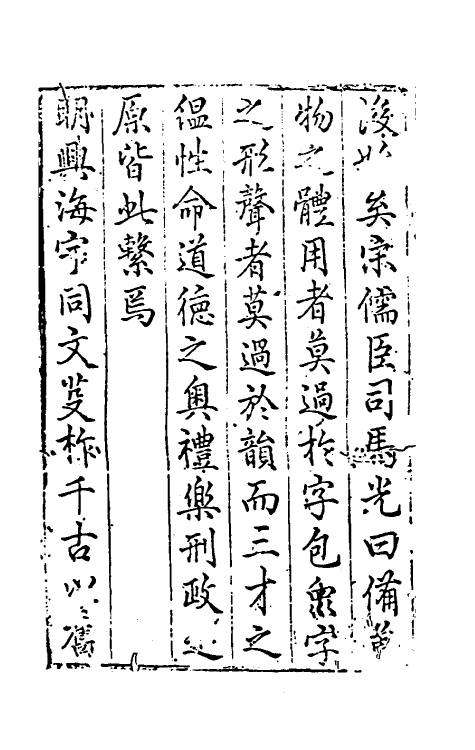 矣宋儒臣司馬光曰備萬
物之體用者莫過於字包衆字
之形聲者莫過於韻而三才之
藴性命道德之奧禮樂刑政之
原皆此繫焉
明興海宇同文芟柞千古之舊